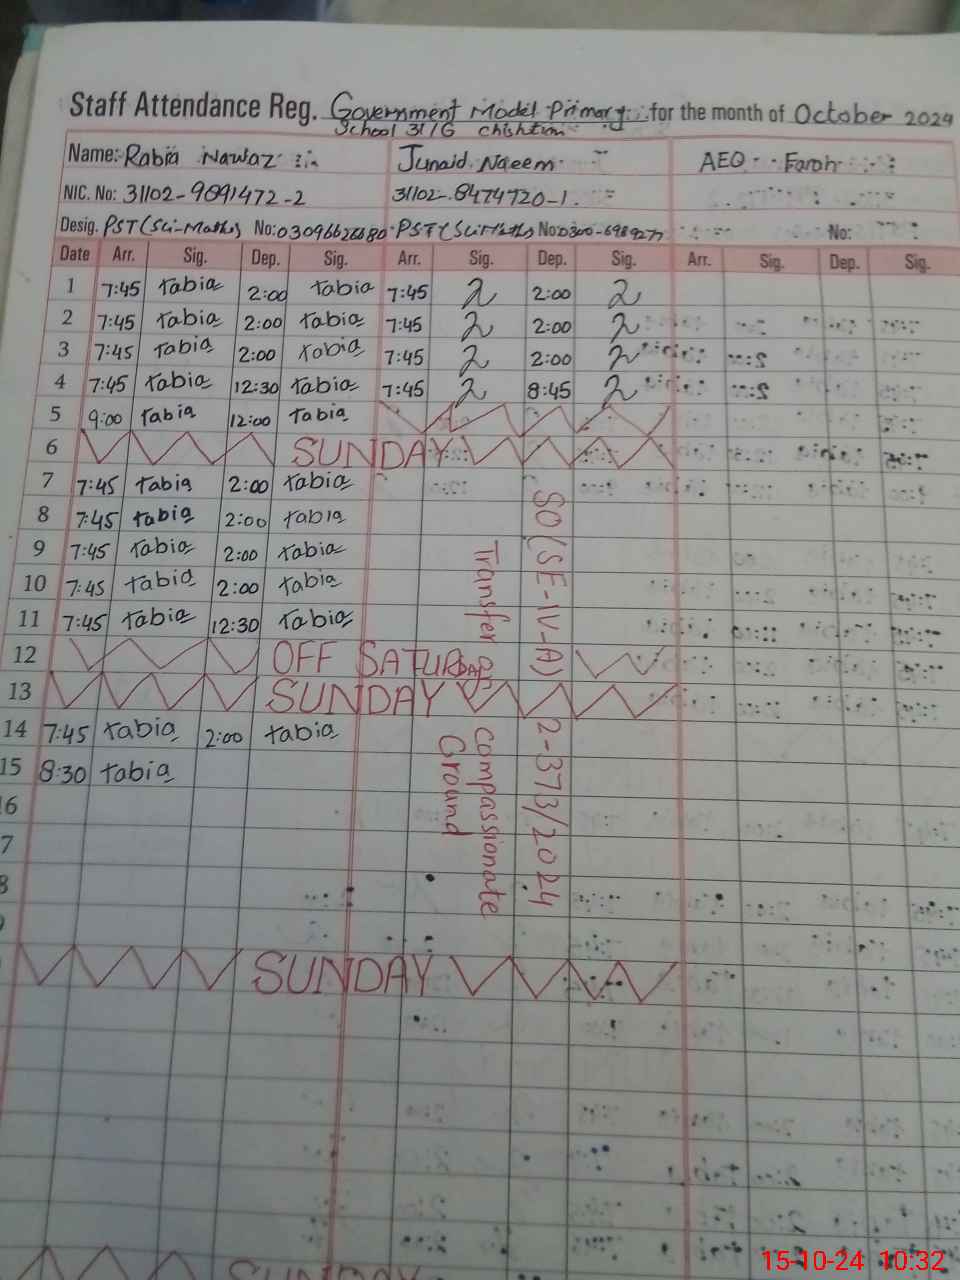 Staff Attendance Reg. Government Model Primary for the month of October 2024
School 31/G chishtian
Name: Rabia Nawaz Junaid Naeem AEO Farah
NIC. No: 31102-9091472-2 31102-8474720-1
Desig. PST (Sci-Maths) No: PST (Sci Maths) No: No:
Date Arr. Sig. Dep. Sig. Arr. Sig. Dep. Sig. Arr. Sig. Dep. Sig.
1 7:45 rabia 2:00 rabia 7:45 2:00
2 7:45 rabia 2:00 rabia 7:45 2:00
3 7:45 rabia 2:00 rabia 7:45 2:00
4 7:45 rabia 12:30 rabia 7:45 8:45
5 9:00 rabia 12:00 rabia
6 SUNDAY
7 7:45 rabia 2:00 rabia
8 7:45 rabia 2:00 rabia
9 7:45 rabia 2:00 rabia
10 7:45 rabia 2:00 rabia
11 7:45 rabia 12:30 rabia
12 OFF SATURDAY
13 SUNDAY
14 7:45 rabia 2:00 rabia
15 8:30 rabia
6
7
8
9
SUNDAY
SUNDAY
SO (SE-IV-A) 2-373/2024
Transfer on compassionate
Ground
15-10-24 10:32